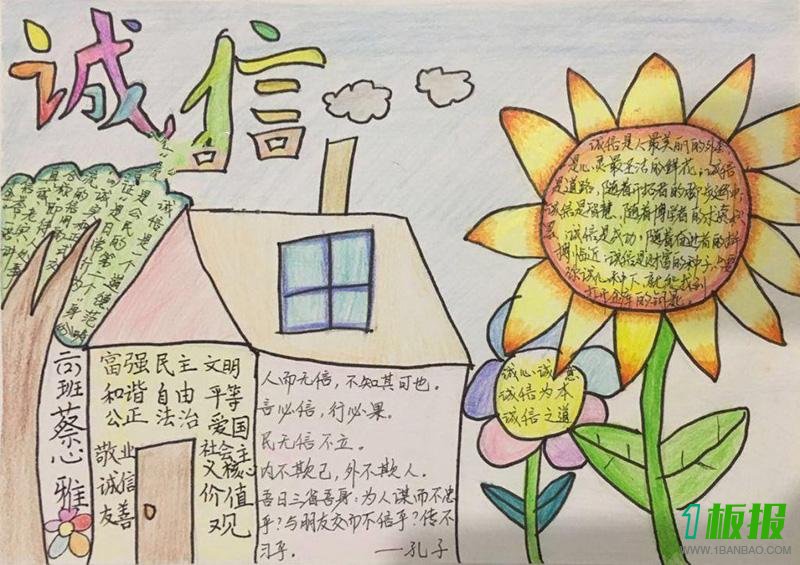 诚信
诚信是人最美丽的外套
是心灵最圣洁的鲜花。诚信
是道路，随着开拓者的脚步延伸，
诚信是智慧，随着博学者的求索积
累，诚信是成功，随着奋进者的拼
搏临近，诚信是财富的种子，只要
你诚心种下，就能找到
打开金库的钥匙。
诚信是一个
道德规范
是公民的
富强 民主 文明
和谐 自由 平等
公正 法治 爱国
敬业
诚信
友善
社会主
义核心
价值
观
人而无信，不知其可也。
言必信，行必果。
民无信不立。
内不欺己，外不欺人。
吾日三省吾身：为人谋而不忠
乎？与朋友交而不信乎？传不
习乎。 ——孔子
诚心诚意
诚信为本
诚信之道
班蔡心雅
1板报
WWW.1BANBAO.COM